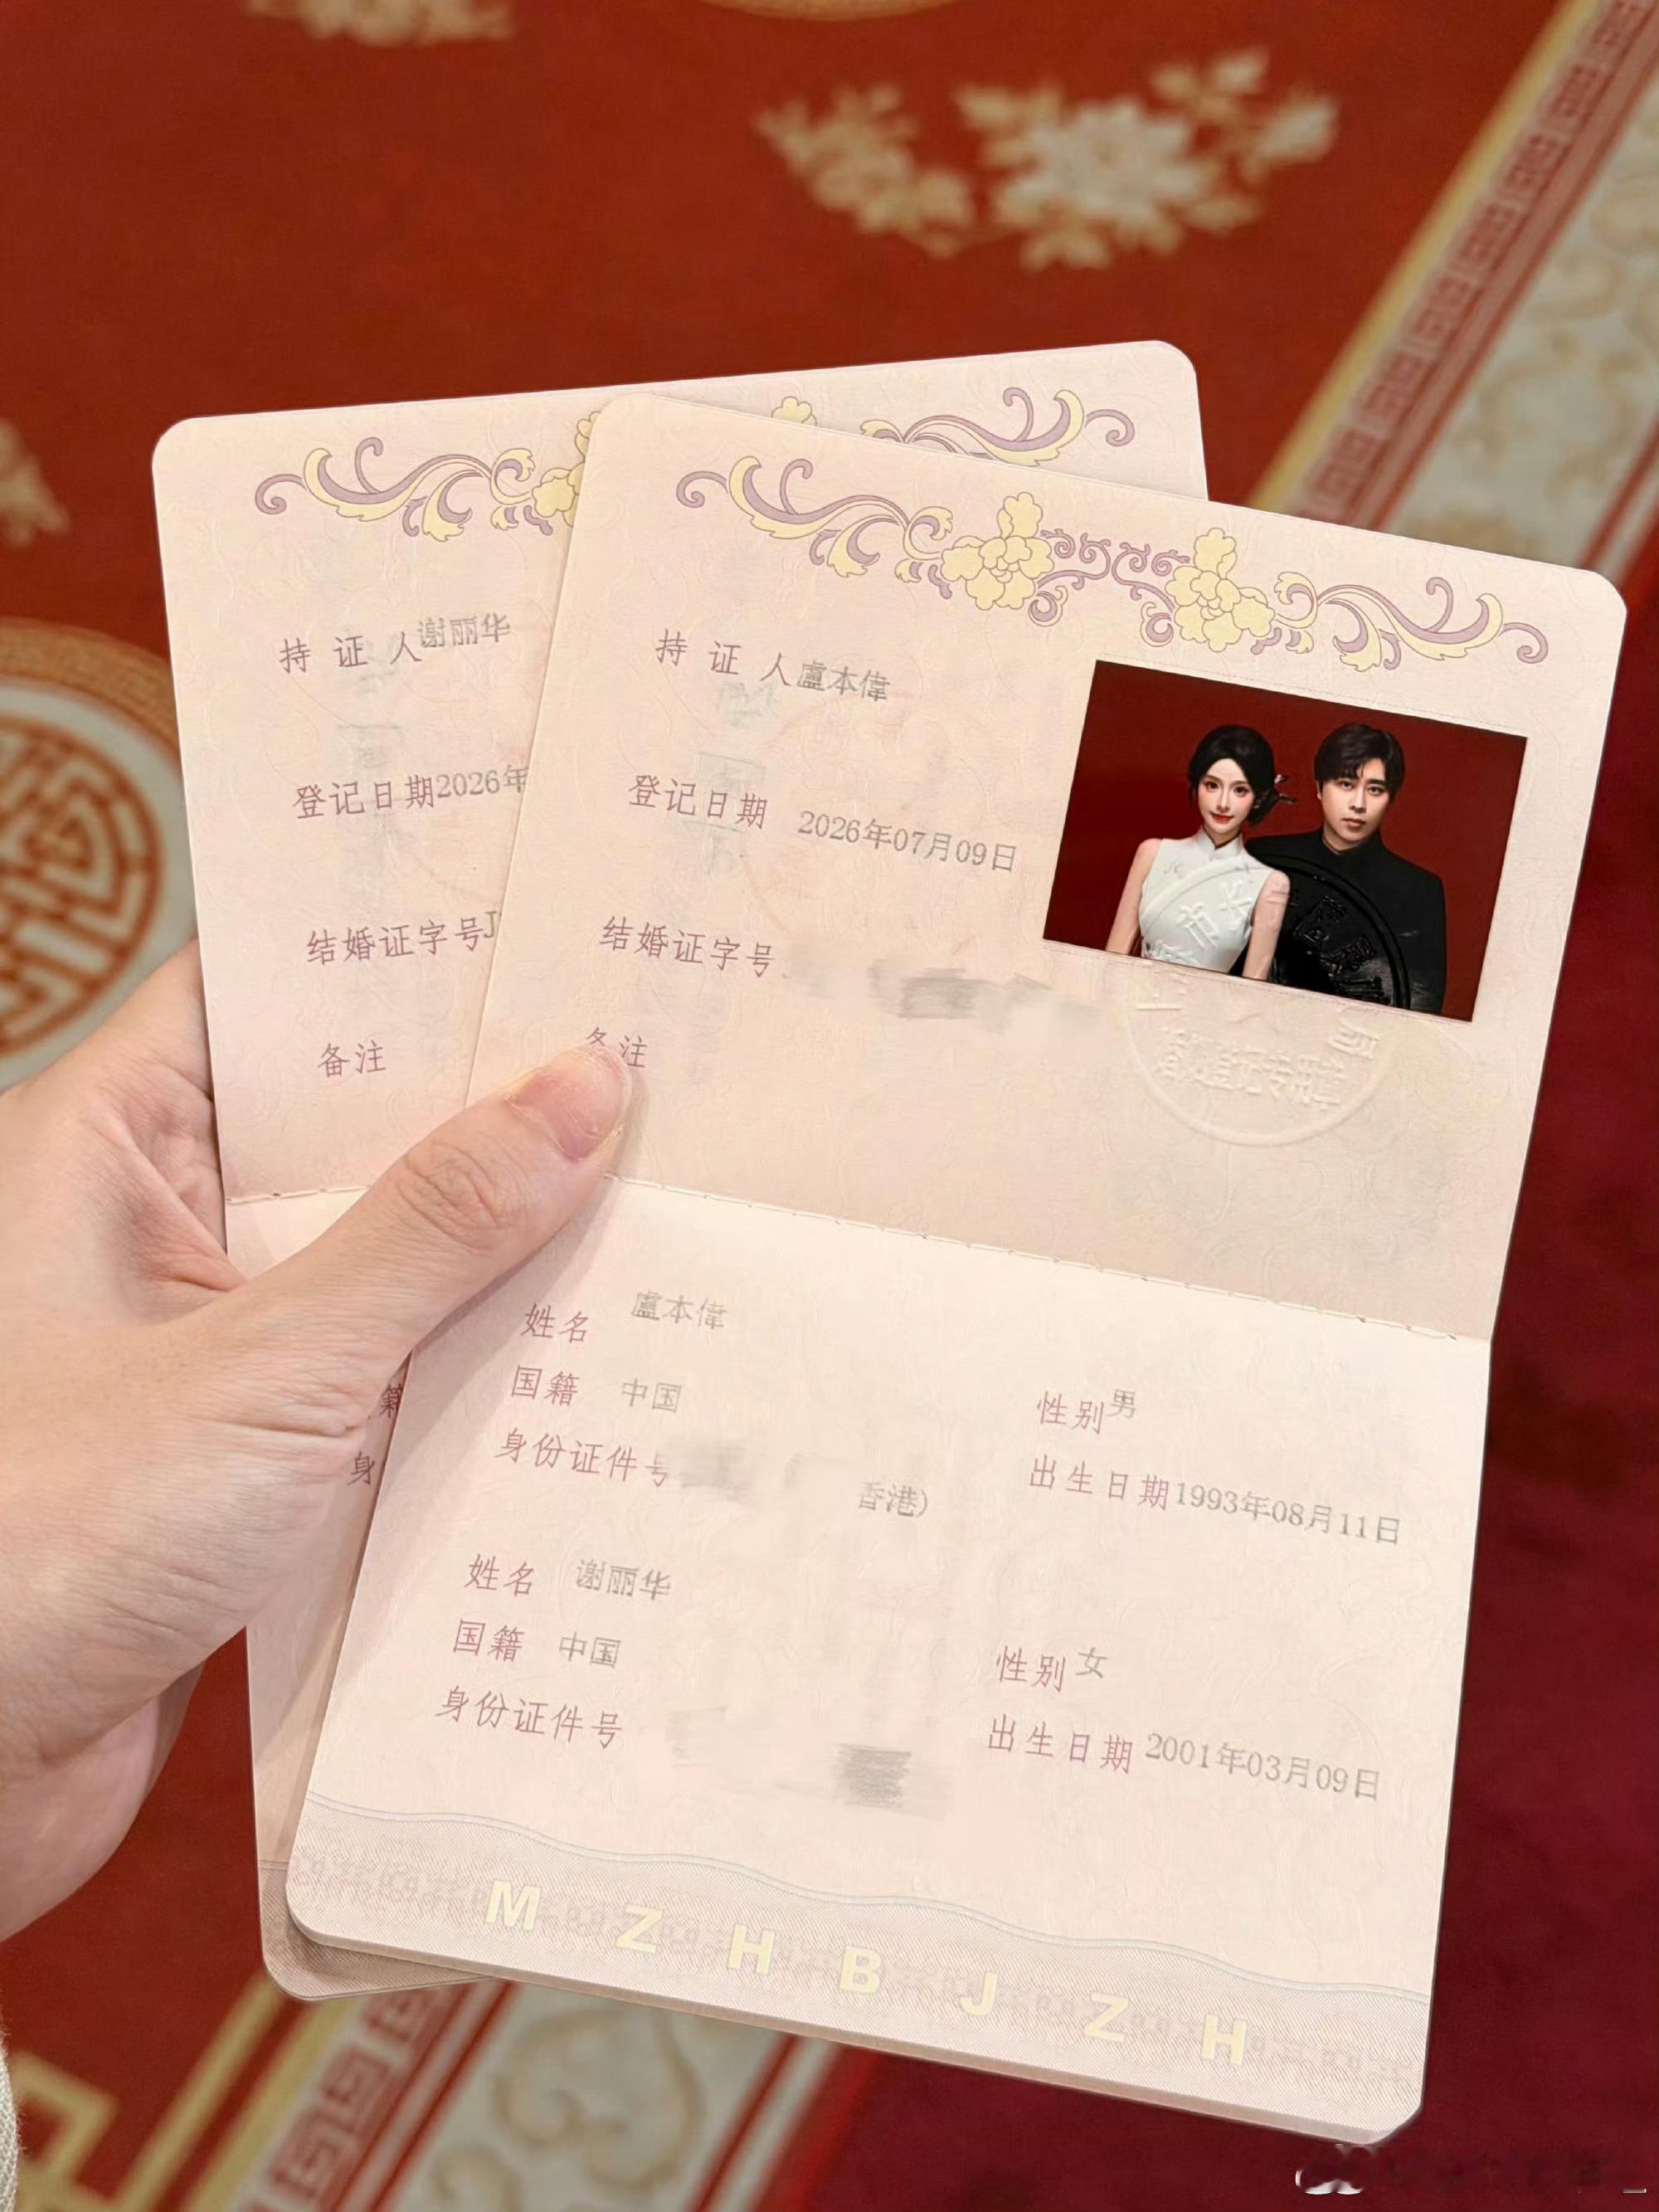 持证人谢丽华
登记日期2026年
结婚证字号J
备注
持证人盧本偉
登记日期 2026年07月09日
结婚证字号
备注
婚姻登记专用章
姓名 盧本偉
国籍 中国
性别男
身份证件号
香港)
出生日期1993年08月11日
姓名 谢丽华
国籍 中国
性别女
身份证件号
出生日期 2001年03月09日
籍
身
M Z H B J Z H